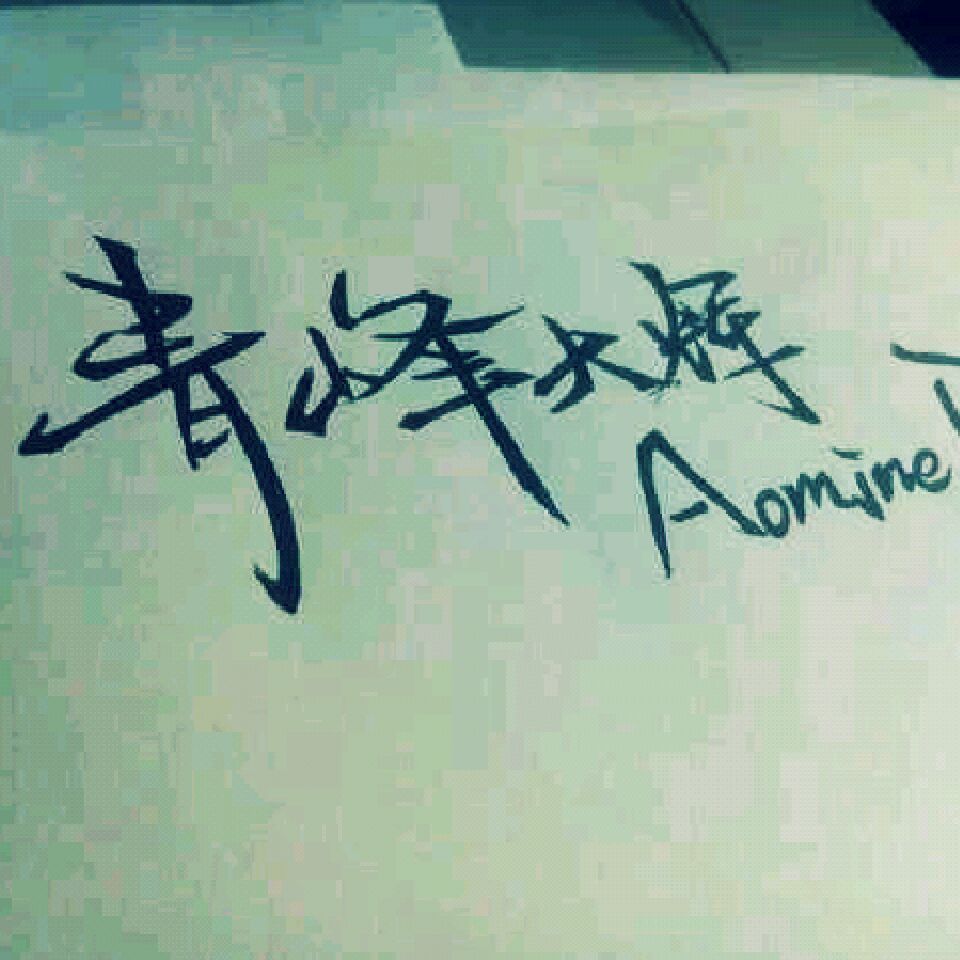 青峰大辉
Aomine